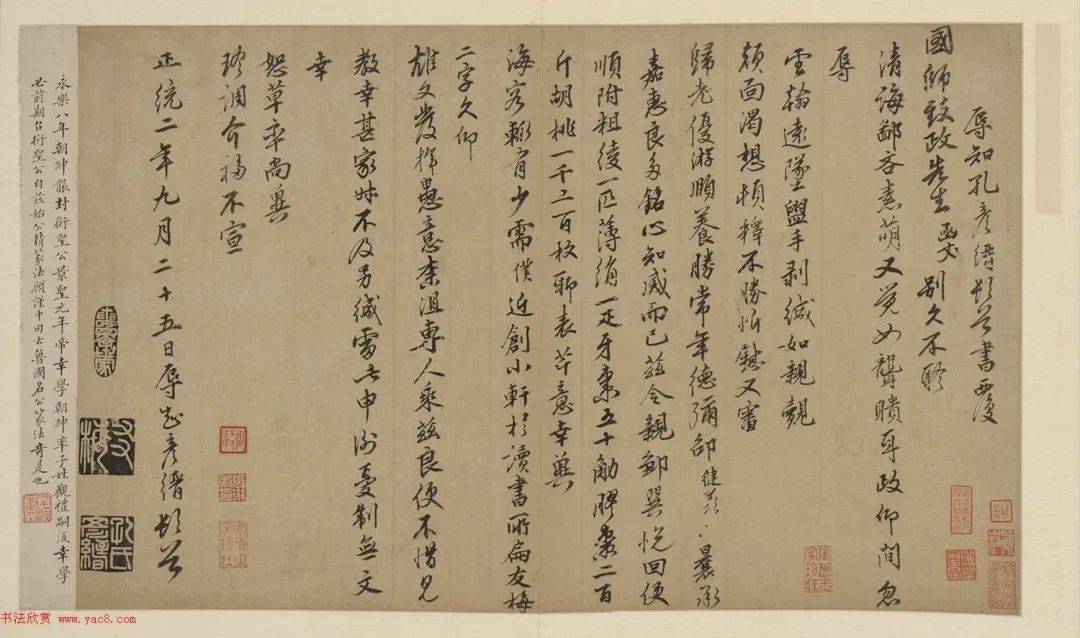 辱知孔彥縉頓首書覆
國師致政先生函丈別久不聆
清誨鄙吝素萌又覺如聾聵耳政仰間忽
辱
雲翰遠墜盥手剥緘如親覿
顏面渴想頓釋不勝忻慰又審
歸老優游順養勝常年德彌邵健羨健羨曩承
嘉惠良多銘心知感而已茲令親鄒巽悅回便
順附粗綾一匹薄絹一疋牙棗五十觔膠棗二百
斤胡桃一千二百枚聊表芹意幸興
海客輒有少需僕近創小軒於讀書所扁友梅
二字久仰
雄文發揮愚意柰沮專人乘茲良便不惜見
教幸甚家妹不及另緘需此申謝憂制無文
幸
恕草率尚興
珍調介福不宣
正統二年九月二十五日辱知彥縉頓首
友梅
孔氏彥縉
永樂八年朝紳襲封衍聖公景聖元年帝幸學朝紳率子姓觀禮嗣後幸學
必前期召衍聖公自茲始公精篆法顧謹中田士魯國名公篆法奇是也
书法欣赏 www.yac8.com